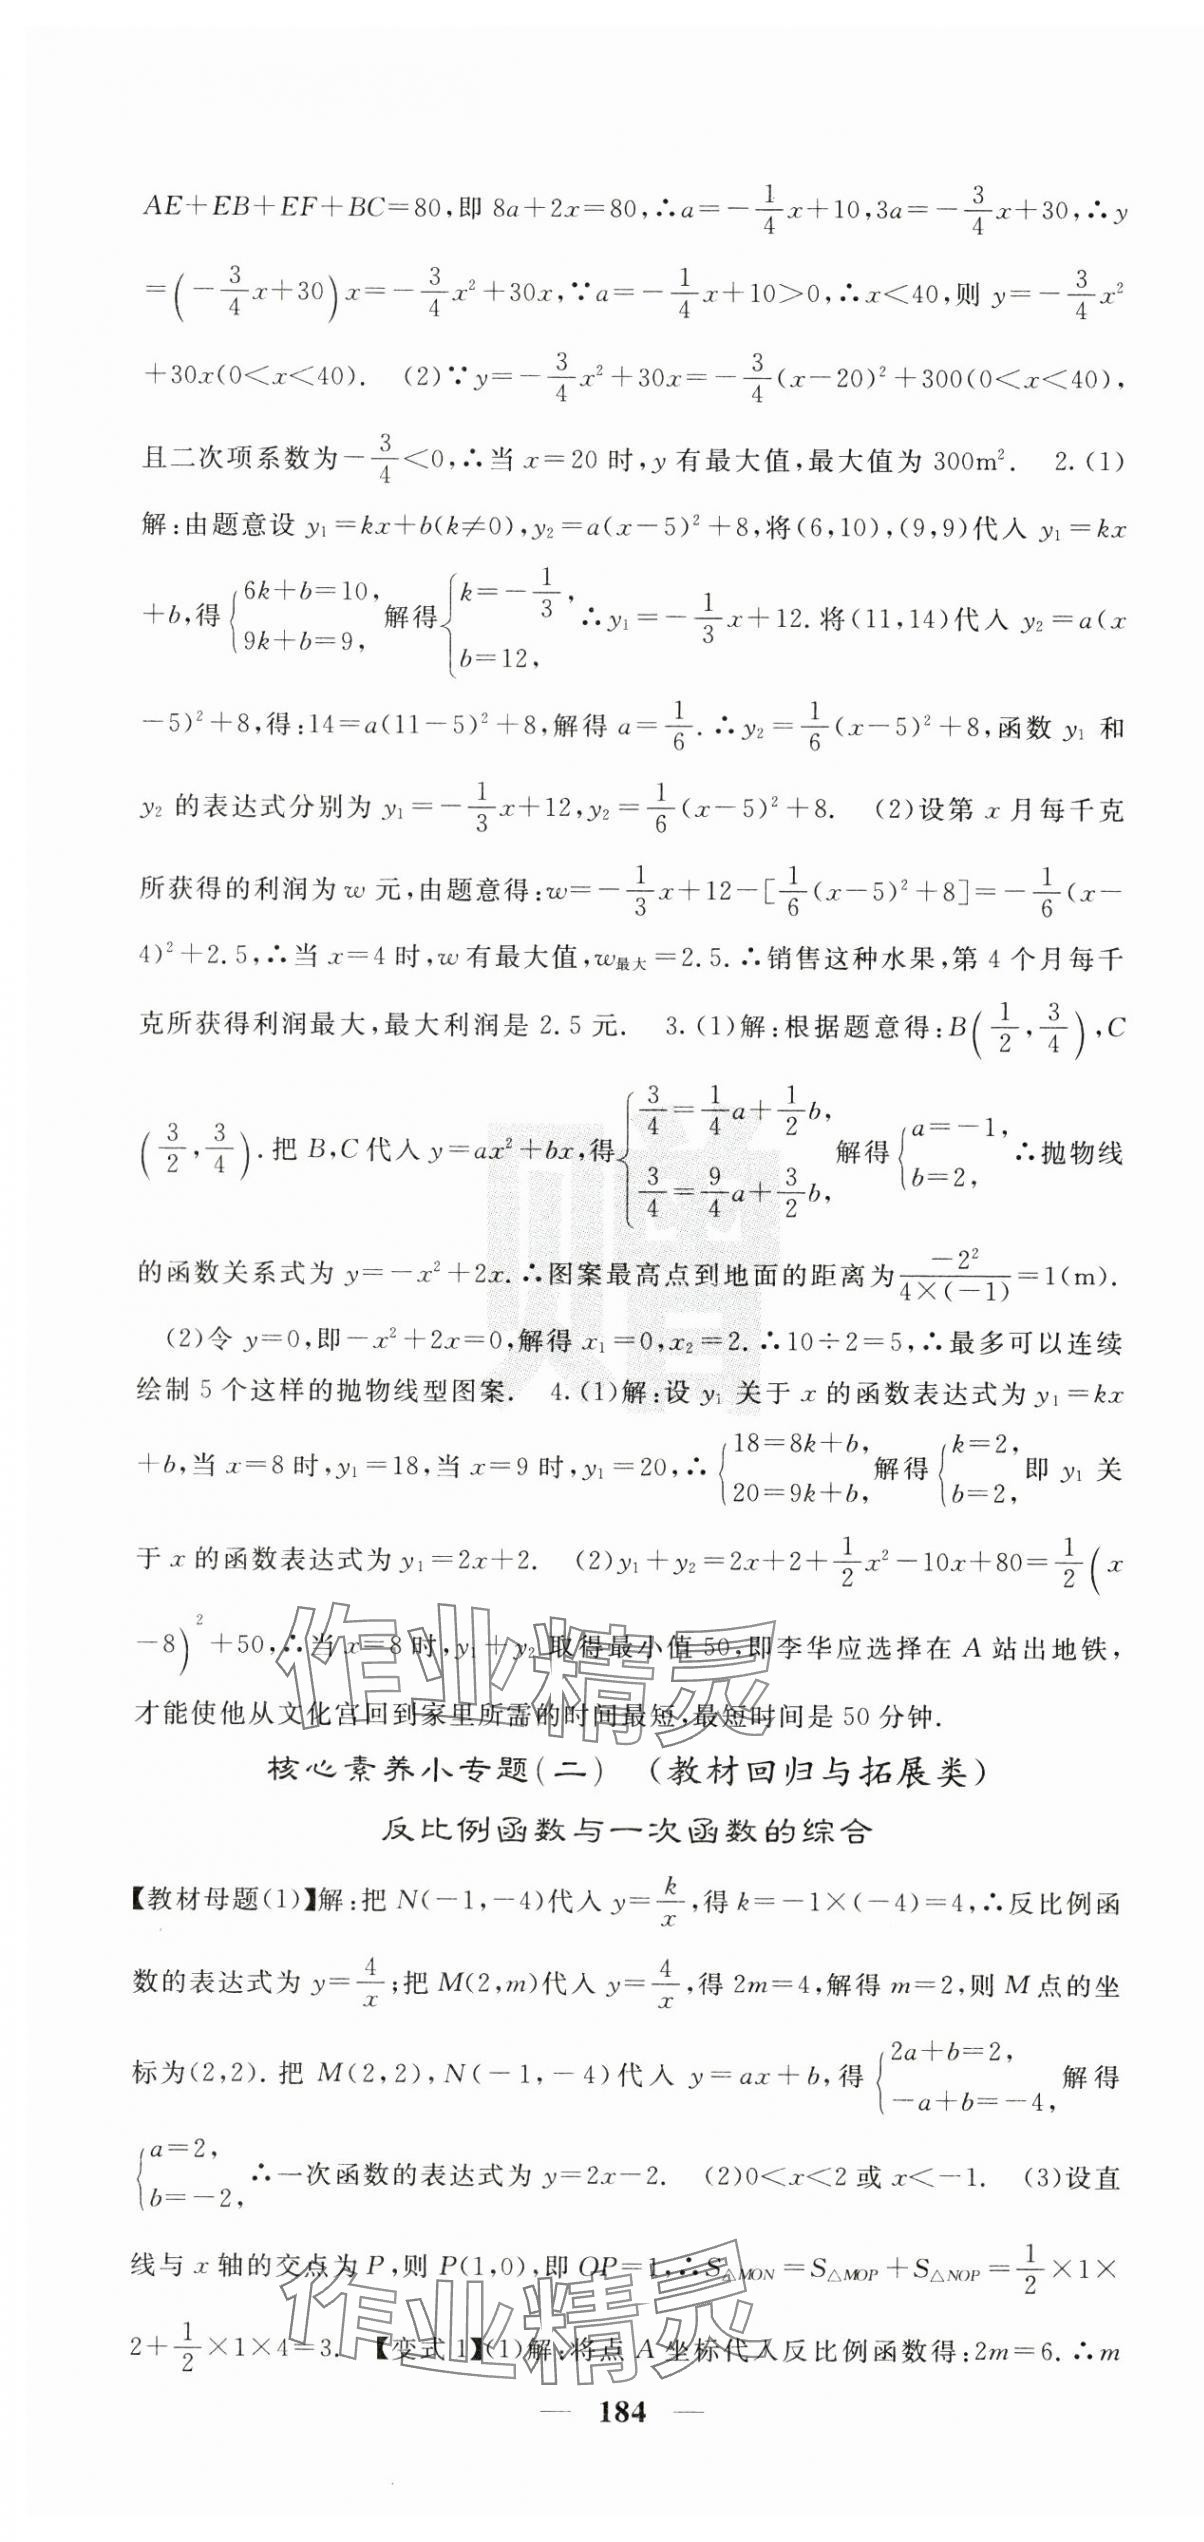 AE+EB+EF+BC=80,即 8a+2x=80,∴a=-1/4x+10,3a=-3/4x+30,∴y
=(-3/4x+30)x=-3/4x²+30x,∵a=-1/4x+10>0,∴x<40,则 y=-3/4x²
+30x(0<x<40). (2)∵y=-3/4x²+30x=-3/4(x-20)²+300(0<x<40),
且二次项系数为-3/4<0,∴当 x=20 时,y 有最大值,最大值为 300m². 2.(1)
解:由题意设 y₁=kx+b(k≠0),y₂=a(x-5)²+8,将(6,10),(9,9)代入 y₁=kx
+b,得{6k+b=10, 9k+b=9, 解得{k=-1/3, b=12, ∴y₁=-1/3x+12.将(11,14)代入 y₂=a(x
-5)²+8,得:14=a(11-5)²+8,解得 a=1/6.∴y₂=1/6(x-5)²+8,函数 y₁ 和
y₂ 的表达式分别为 y₁=-1/3x+12,y₂=1/6(x-5)²+8. (2)设第 x 月每千克
所获得的利润为 w 元,由题意得:w=-1/3x+12-[1/6(x-5)²+8]=-1/6(x-
4)²+2.5,∴当 x=4 时,w 有最大值,w最大=2.5.∴销售这种水果,第 4 个月每千
克所获得利润最大,最大利润是 2.5 元. 3.(1)解:根据题意得:B(1/2,3/4),C
(3/2,3/4).把 B,C 代入 y=ax²+bx,得{3/4=1/4a+1/2b, 3/4=9/4a+3/2b, 解得{a=-1, b=2, ∴抛物线
的函数关系式为 y=-x²+2x.∴图案最高点到地面的距离为-2²/4×(-1)=1(m).
(2)令 y=0,即-x²+2x=0,解得 x₁=0,x₂=2.∴10÷2=5,∴最多可以连续
绘制 5 个这样的抛物线型图案. 4.(1)解:设 y₁ 关于 x 的函数表达式为 y₁=kx
+b,当 x=8 时,y₁=18,当 x=9 时,y₁=20,∴{18=8k+b, 20=9k+b, 解得{k=2, b=2, 即 y₁ 关
于 x 的函数表达式为 y₁=2x+2. (2)y₁+y₂=2x+2+1/2x²-10x+80=1/2(x
-8)²+50,∴当 x=8 时,y₁+y₂ 取得最小值 50,即李华应选择在 A 站出地铁,
才能使他从文化宫回到家里所需的时间最短,最短时间是 50 分钟.
作业精灵
核心素养小专题(二) (教材回归与拓展类)
反比例函数与一次函数的综合
【教材母题(1)】解:把 N(-1,-4)代入 y=k/x,得 k=-1×(-4)=4,∴反比例函
数的表达式为 y=4/x;把 M(2,m)代入 y=4/x,得 2m=4,解得 m=2,则 M 点的坐
标为(2,2).把 M(2,2),N(-1,-4)代入 y=ax+b,得{2a+b=2, -a+b=-4, 解得
{a=2, b=-2, ∴一次函数的表达式为 y=2x-2. (2)0<x<2 或 x<-1. (3)设直
线与 x 轴的交点为 P,则 P(1,0),即 OP=1,∴S△MON=S△MOP+S△NOP=1/2×1×
2+1/2×1×4=3. 【变式 1】(1)解:将点 A 坐标代入反比例函数得:2m=6.∴m
作业精灵
— 184 —
赠